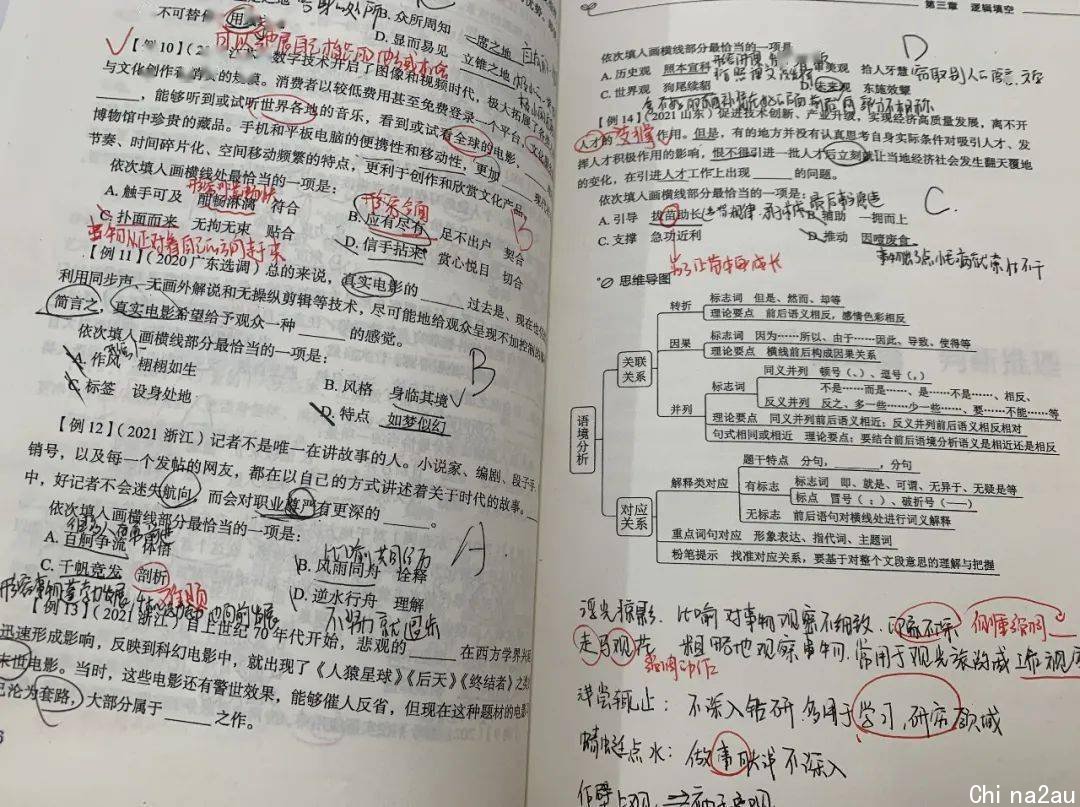 不可替代
B. 众所周知
一席之地
用
D. 显而易见
立锥之地
【例 10】
数字技术开启了图像和视频时代，极大拓展了
与文化创作和消费的规模。消费者以较低费用甚至免费登录一个平台，
______，能够听到或试听世界各地的音乐，看到或试看全球的电影，
博物馆中珍贵的藏品。手机和平板电脑的便携性和移动性，更加
节奏、时间碎片化、空间移动频繁的特点，更利于创作和欣赏文化产品。
依次填入画横线处最恰当的一项是：
A. 触手可及 酣畅淋漓 符合
B. 应有尽有 足不出户 契合
B
C. 扑面而来 无拘无束 贴合
D. 信手拈来 赏心悦目 切合
【例 11】（2020 广东选调）总的来说，真实电影的 ______ 过去是、现在也
利用同步声、无画外解说和无操纵剪辑等技术，尽可能地给观众呈现不加控制的
简言之，真实电影希望给予观众一种 ______ 的感觉。
依次填入画横线部分最恰当的一项是：
A. 作风 栩栩如生
B. 风格 身临其境
B
C. 标签 设身处地
D. 特点 如梦似幻
【例 12】（2021 浙江）记者不是唯一在讲故事的人。小说家、编剧、段子手、
销号，以及每一个发帖的网友，都在以自己的方式讲述着关于时代的故事。
中，好记者不会迷失航向，而会对职业尊严有更深的 ______ 。
依次填入画横线部分最恰当的一项是：
A
A. 百舸争流 体悟
B. 风雨同舟 诠释
C. 千帆竞发 剖析
D. 逆水行舟 理解
不努力就退步
【例 13】（2021 浙江）自上世纪 70 年代开始，悲观的 ______ 在西方学界
迅速形成影响，反映到科幻电影中，就出现了《人猿星球》《后天》《终结者》之类
末世电影。当时，这些电影还有警世效果，能够催人反省，但现在这种题材的电影
已沦为套路，大部分属于 ______ 之作。
6
第三章 逻辑填空
依次填入画横线部分最恰当的一项是
D
A. 历史观 照本宣科
B. 审美观 拾人牙慧
C. 世界观 狗尾续貂
D. 未来观 东施效颦
【例 14】（2021 山东）促进技术创新、产业升级，实现经济高质量发展，离不开
人才的 支撑 作用。但是，有的地方并没有认真思考自身实际条件对吸引人才、发
挥人才积极作用的影响，恨不得引进一批人才后立刻就让当地经济社会发生翻天覆地
的变化，在引进人才工作上出现 ______ 的问题。
依次填入画横线部分最恰当的一项是：
C.
A. 引导 拔苗助长
B. 辅助 一拥而上
C. 支撑 急功近利
D. 推动 因噎废食
思维导图
语境分析
关联关系
转折
标志词 但是、然而、却等
理论要点 前后语义相反，感情色彩相反
因果
标志词 因为……所以、由于……因此、导致、使得等
理论要点 横线前后构成因果关系
并列
标志词
同义并列 顿号（、）、逗号（，）
不是……而是……、是……不是……、相反、
反义并列 反之、多一些……少一些……、要……不能……等
理论要点 同义并列前后语义相近；反义并列前后语义相反相对
句式相同或相近 理论要点：要结合前后语境分析语义是相近还是相反
对应关系
解释类对应
题干特点 分句，______，分句
有标志
标志词 即、就是、可谓、无异于、无疑是等
标点 冒号（：）、破折号（——）
无标志 前后语句对横线处进行词义解释
重点词句对应 形象表达、指代词、主题词
粉笔提示 找准对应关系，要基于对整个文段意思的理解与把握
浮光掠影. 比喻对事物观察不细致. 印象不深 侧重强调
走马观花 粗略地观察事物. 常用于观光旅游或工作视
强调动作
浅尝辄止： 不深入钻研 多用于学习，研究领域
蜻蜓点水： 做事肤浅不深入
作壁上观
Chi na2au